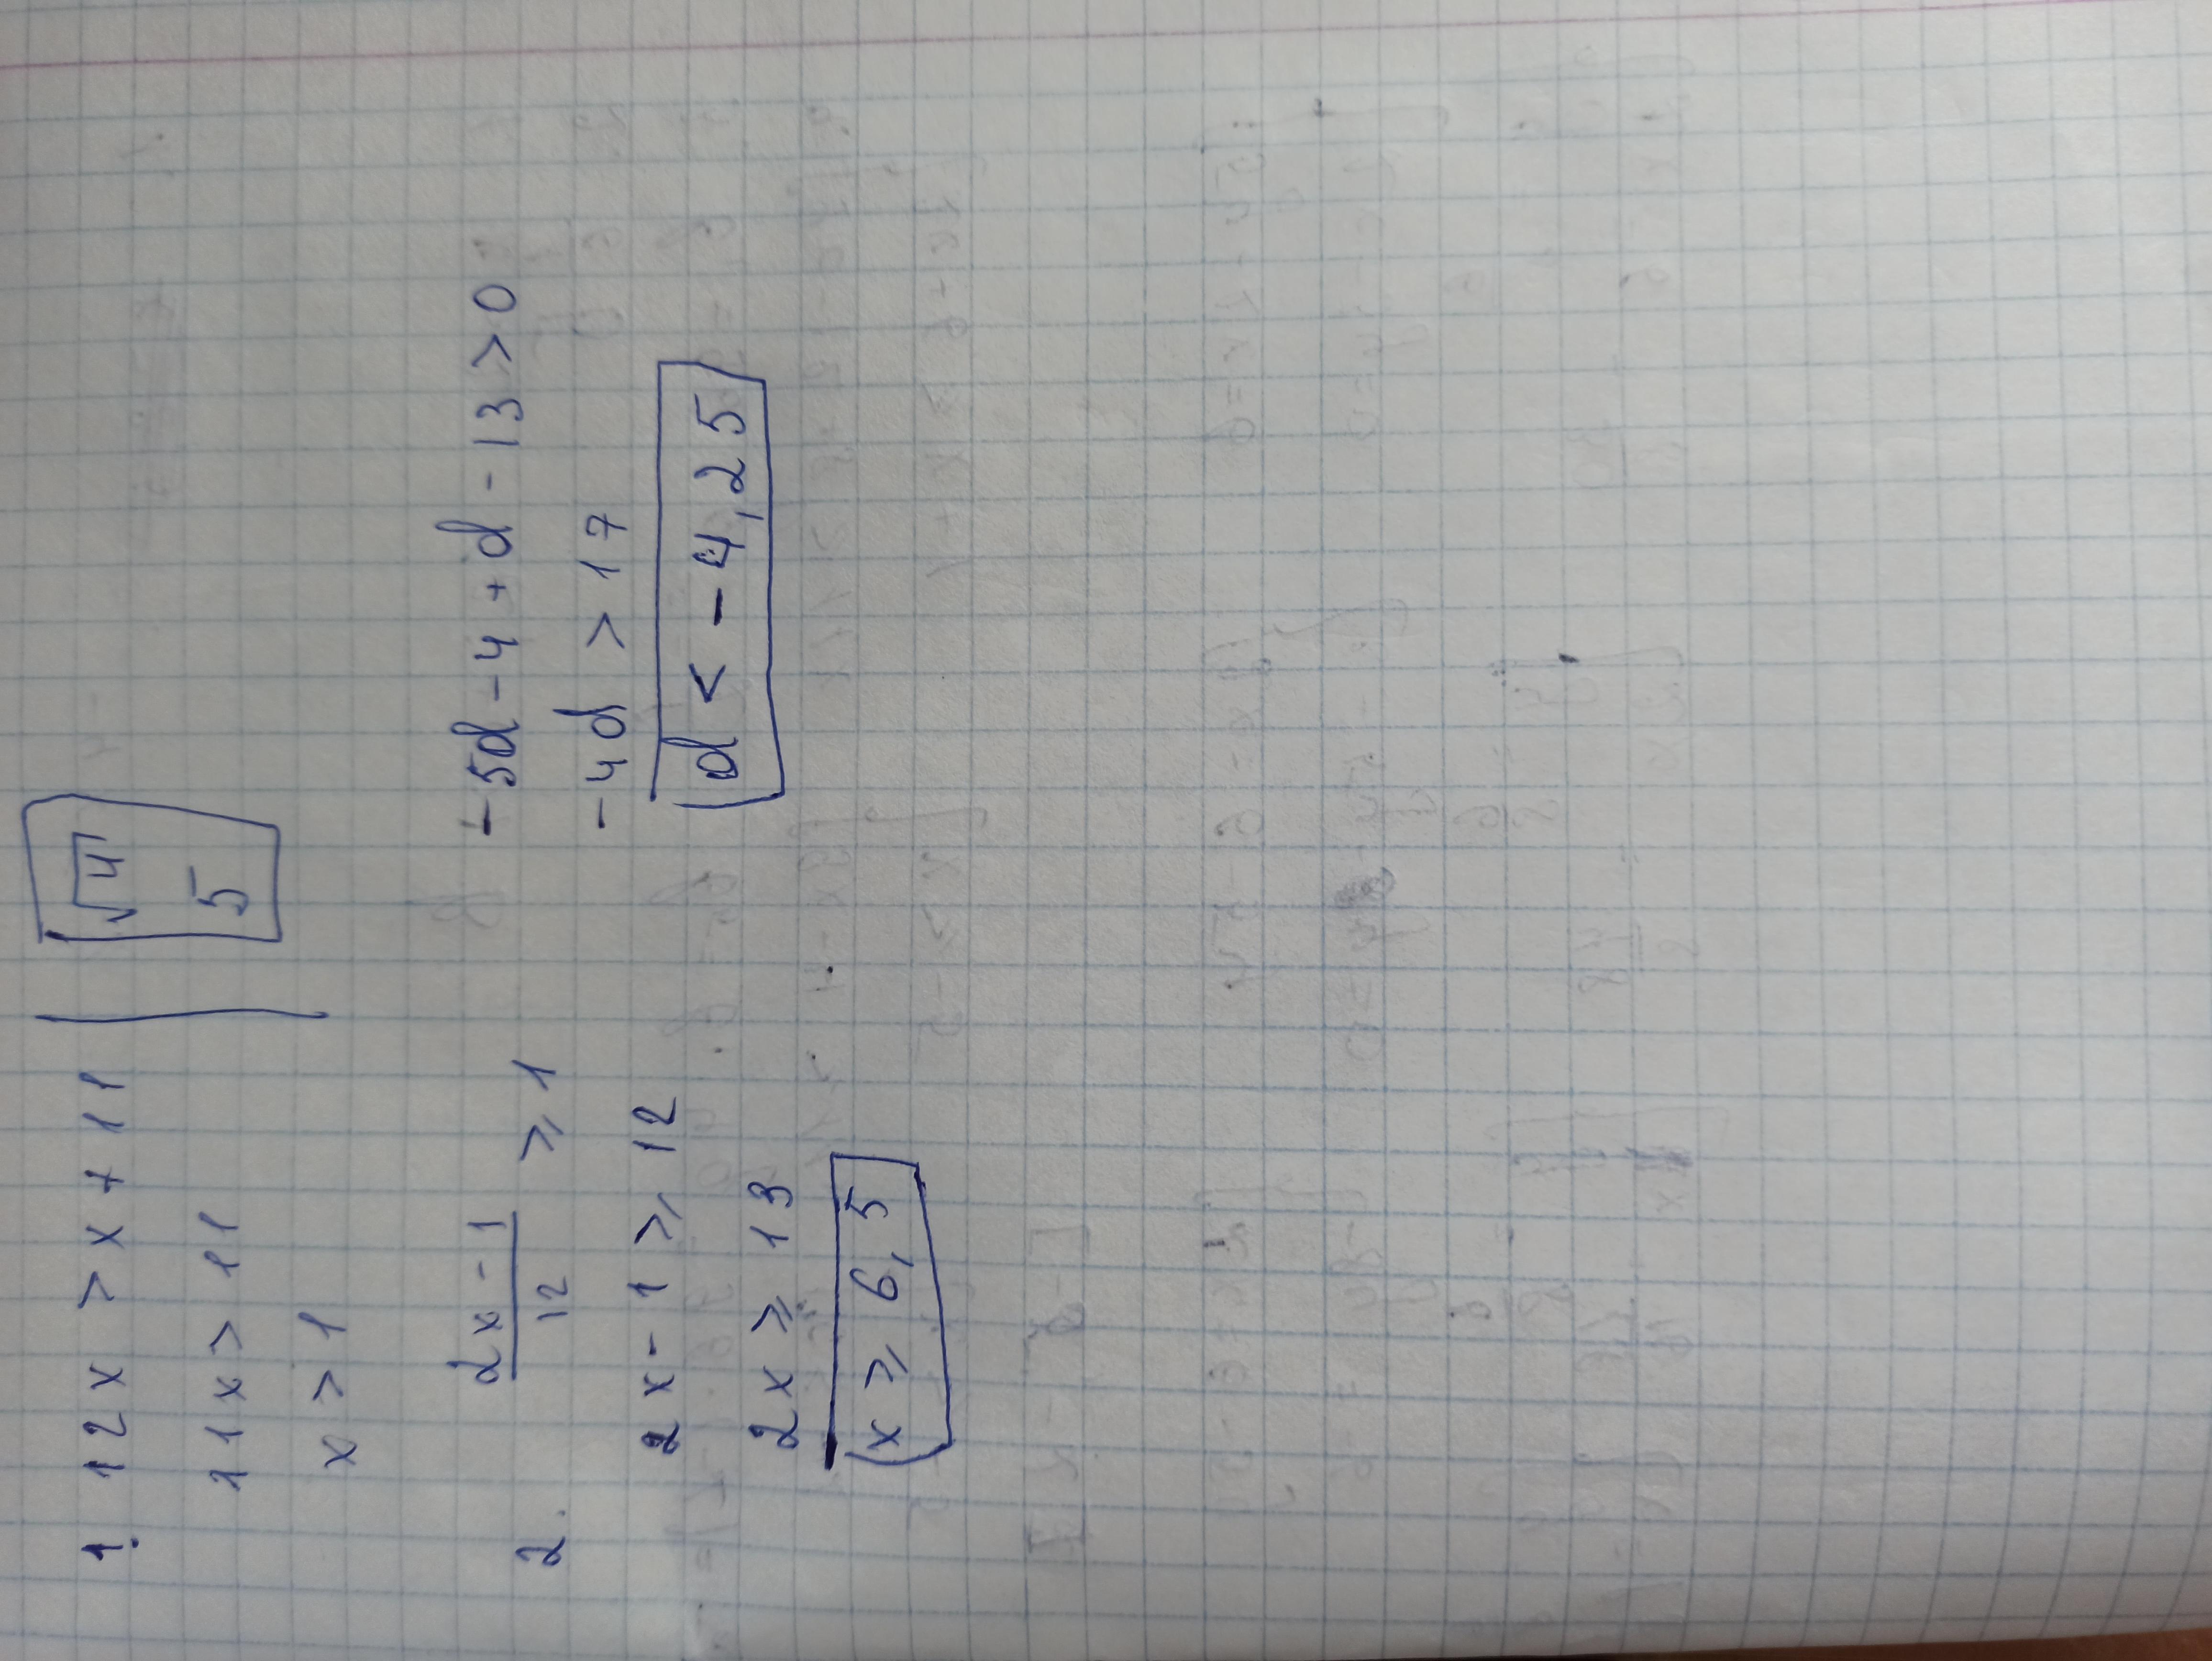 1. 12x > x + 11
11x > 11
x > 1
√4
5
2. 2x - 1
12
⩾ 1
2x - 1 ⩾ 12
2x ⩾ 13
x ⩾ 6,5
-5d - 4 + d - 13 > 0
-4d > 17
d < -4,25